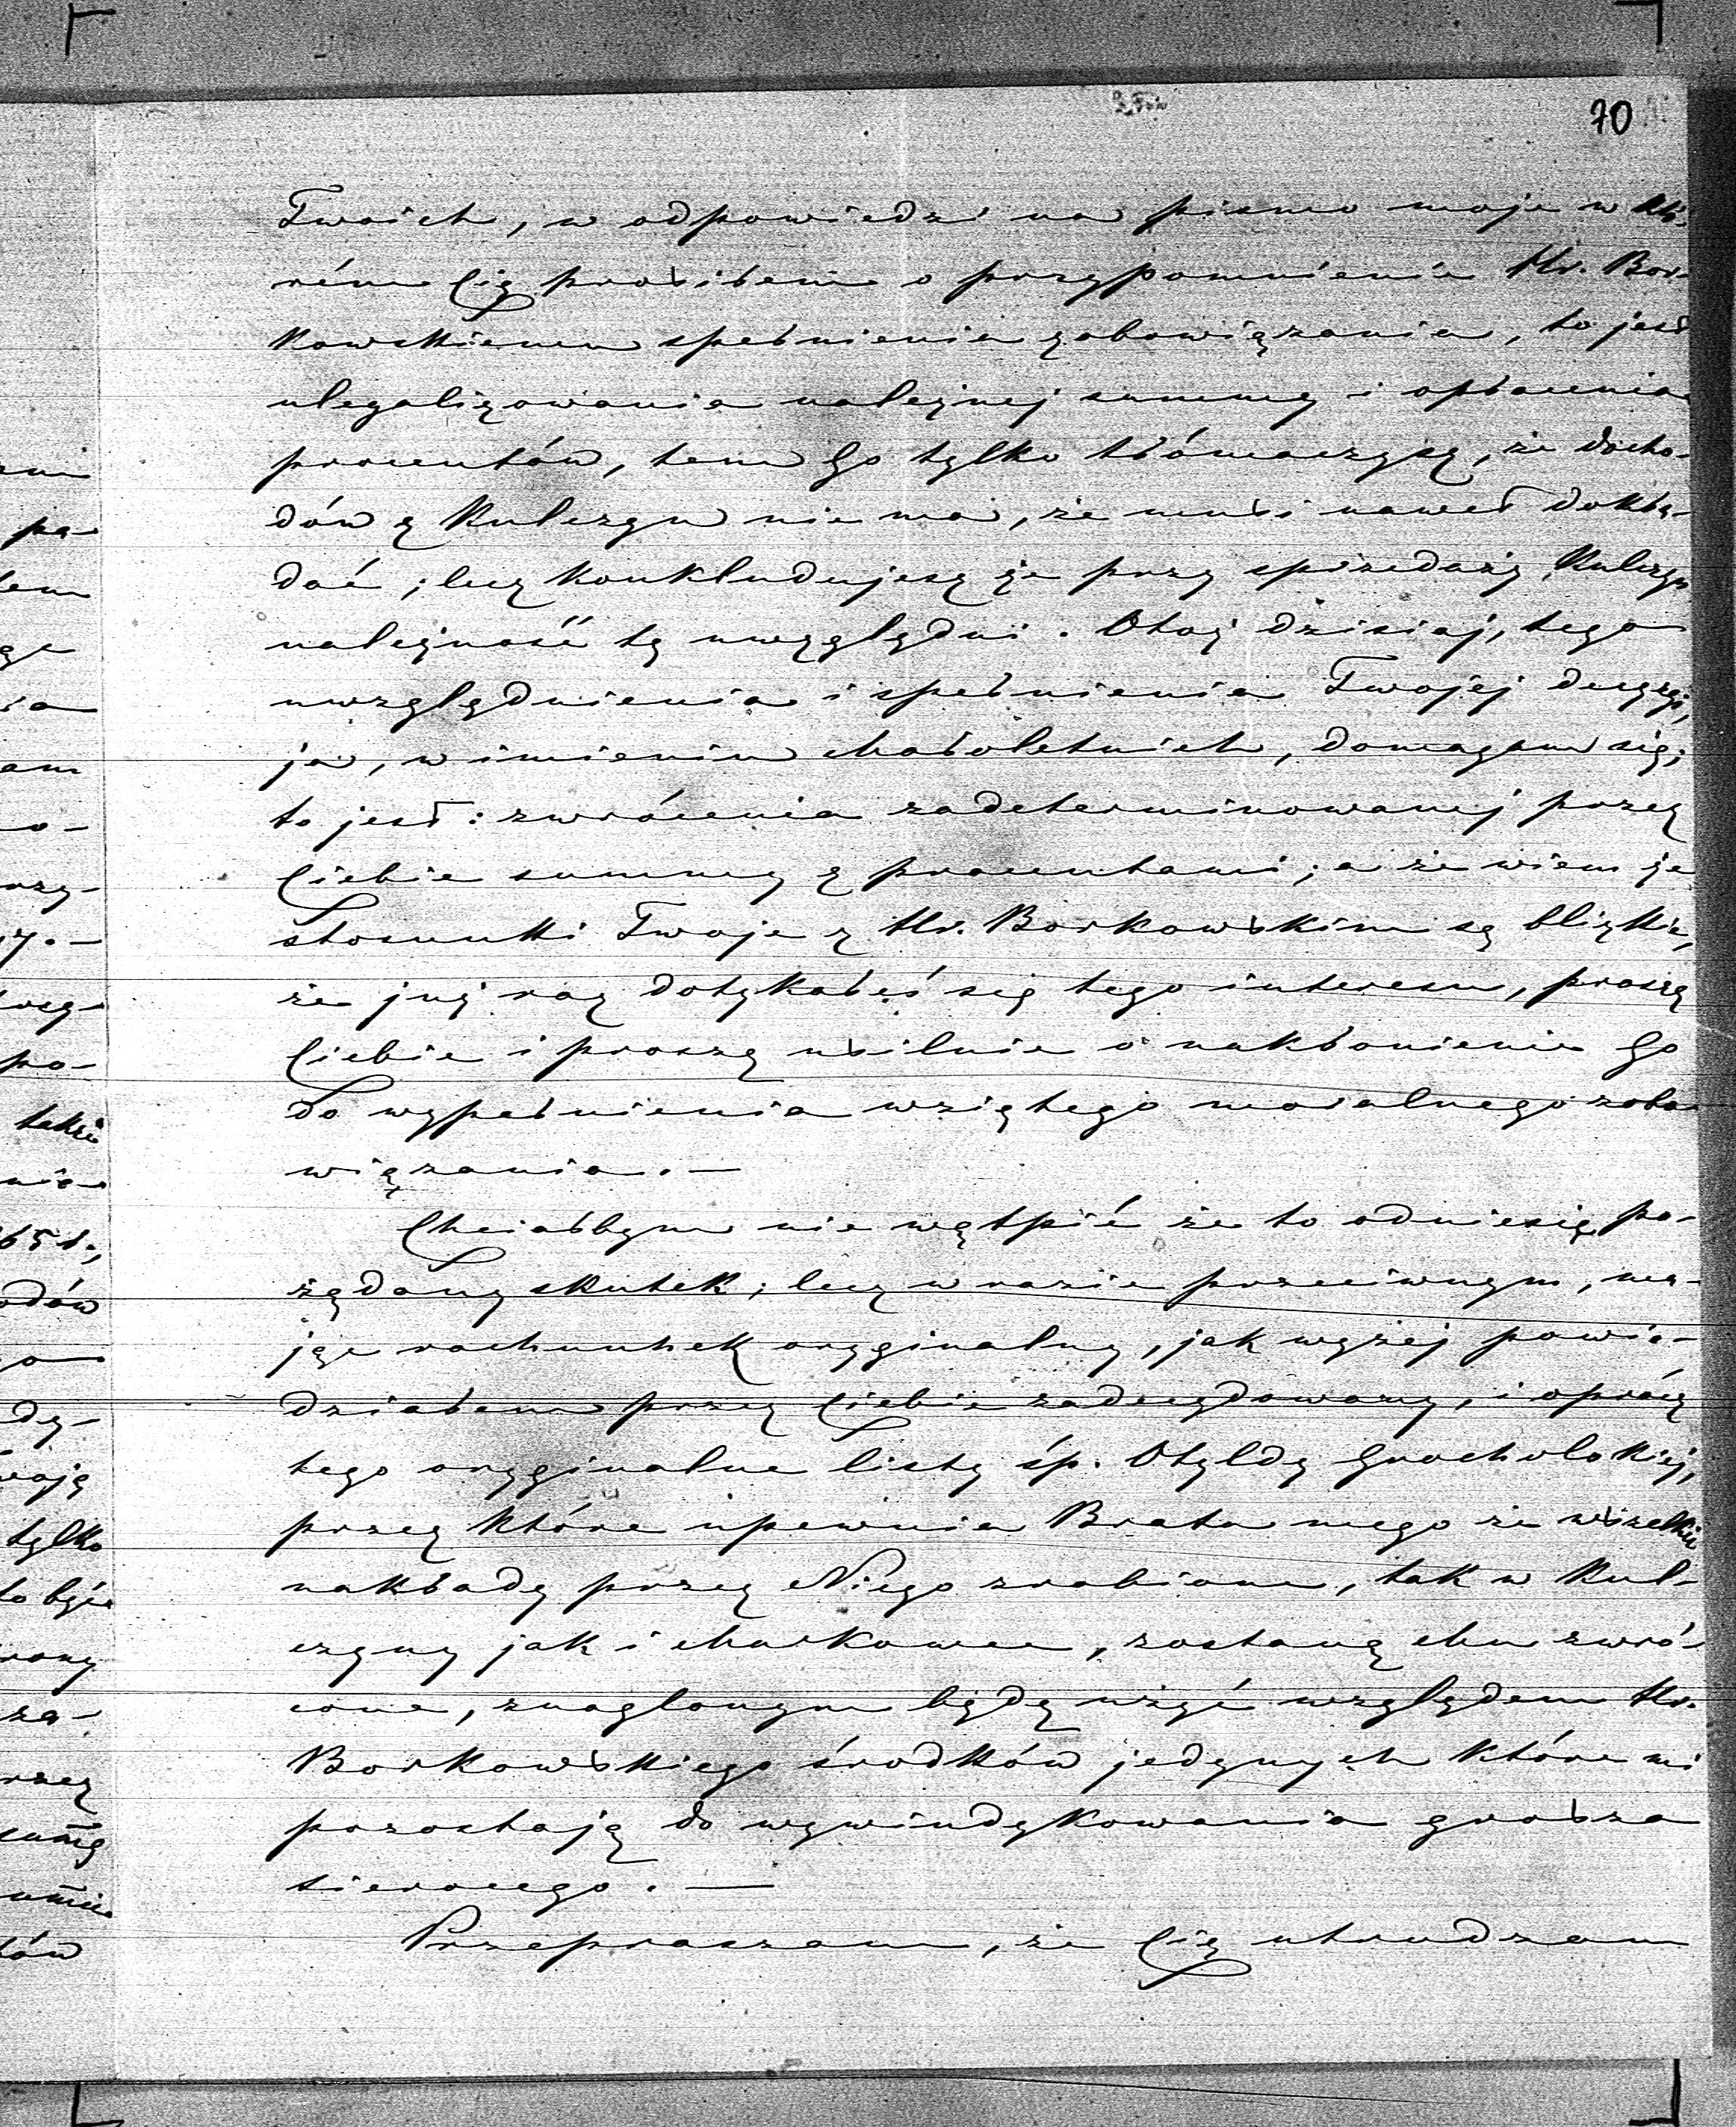 70
Twoich, w odpowiedzi na pismo moje w któ-
rém Cię prosiłem o przypomnienie Hr. Bor-
kowskiemu spełnienia zobowiązania, to jest
ulegalizowania należnej summy i opłacenia
procentów, tem Go tylko tłómaczysz, że docho-
dów z Kulczyn nie ma, że musi nawet dokła-
dać; lecz konkludujesz że przy sprzedaży Kulczyn
należność tę uwzględni. Otoż dzisiaj, tego
uwzględnienia i spełnienia Twojej decyzji,
ja, w imieniu Małoletnich, domagam się;
to jest: zwrócenia zadeterminowanej przez
Ciebie summy z procentami; a że wiem że
stosunki Twoje z Hr. Borkowskim są blizkie,
że już raz dotykałeś się tego interesu, proszę
Ciebie i proszę usilnie o nakłonienie Go
do wypełnienia wziętego moralnego zobo-
wiązania. —
Chciałbym nie wątpić że to odniesie po-
żądany skutek; lecz w razie przeciwnym, ma-
jąc rachunek oryginalny, jak wyżej powie-
działem przez Ciebie zadecydowany, i oprócz
tego oryginalne listy śp. Otyldy Grocholskiej,
przez które upewnia Brata mego że wszelkie
nakłady przez Niego zrobione, tak w Kul-
czyny jak i Markowce, zostaną Mu zwró-
cone, znaglonym będę użyć względem Hr.
Borkowskiego środków jedynych które mi
pozostają do wywindykowania grosza
sierocego. —
Przepraszam, że Cię utrudzam